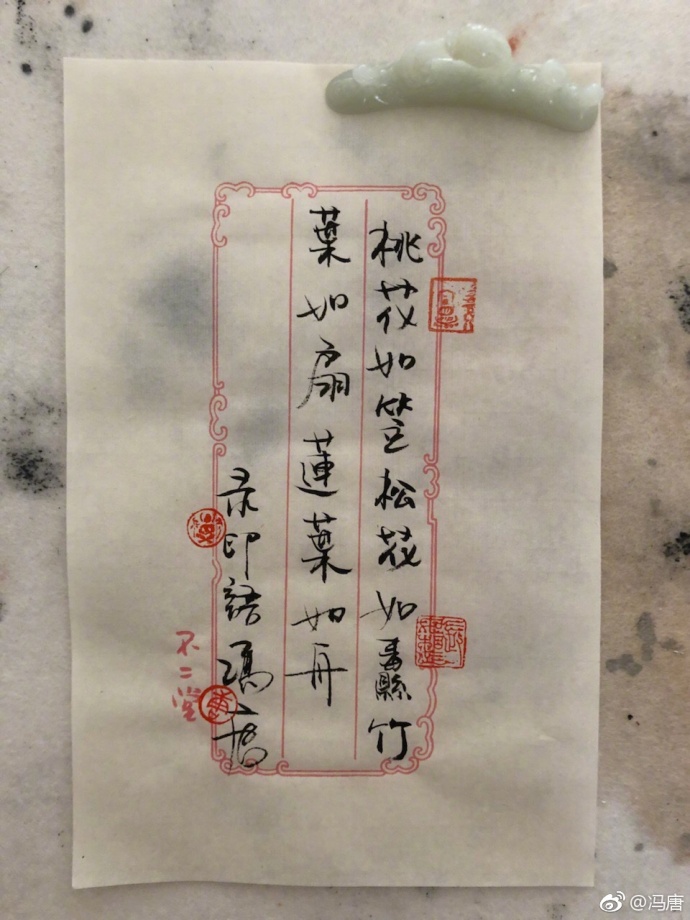 桃花如笠松花如纛竹
葉如扇蓮葉如舟
录印語冯唐
不二堂
@冯唐